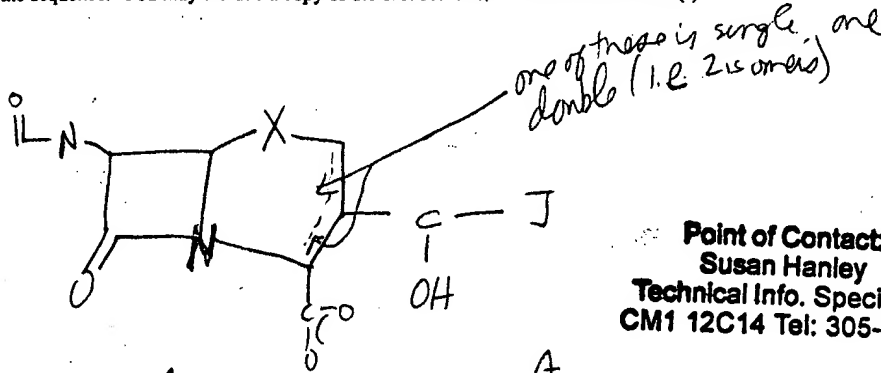 one of these is single, one
double (i.e. 2 isomers)
O
N X
C J
OH
O N
C O
O
Point of Contact:
Susan Hanley
Technical Info. Speci
CM1 12C14 Tel: 305-